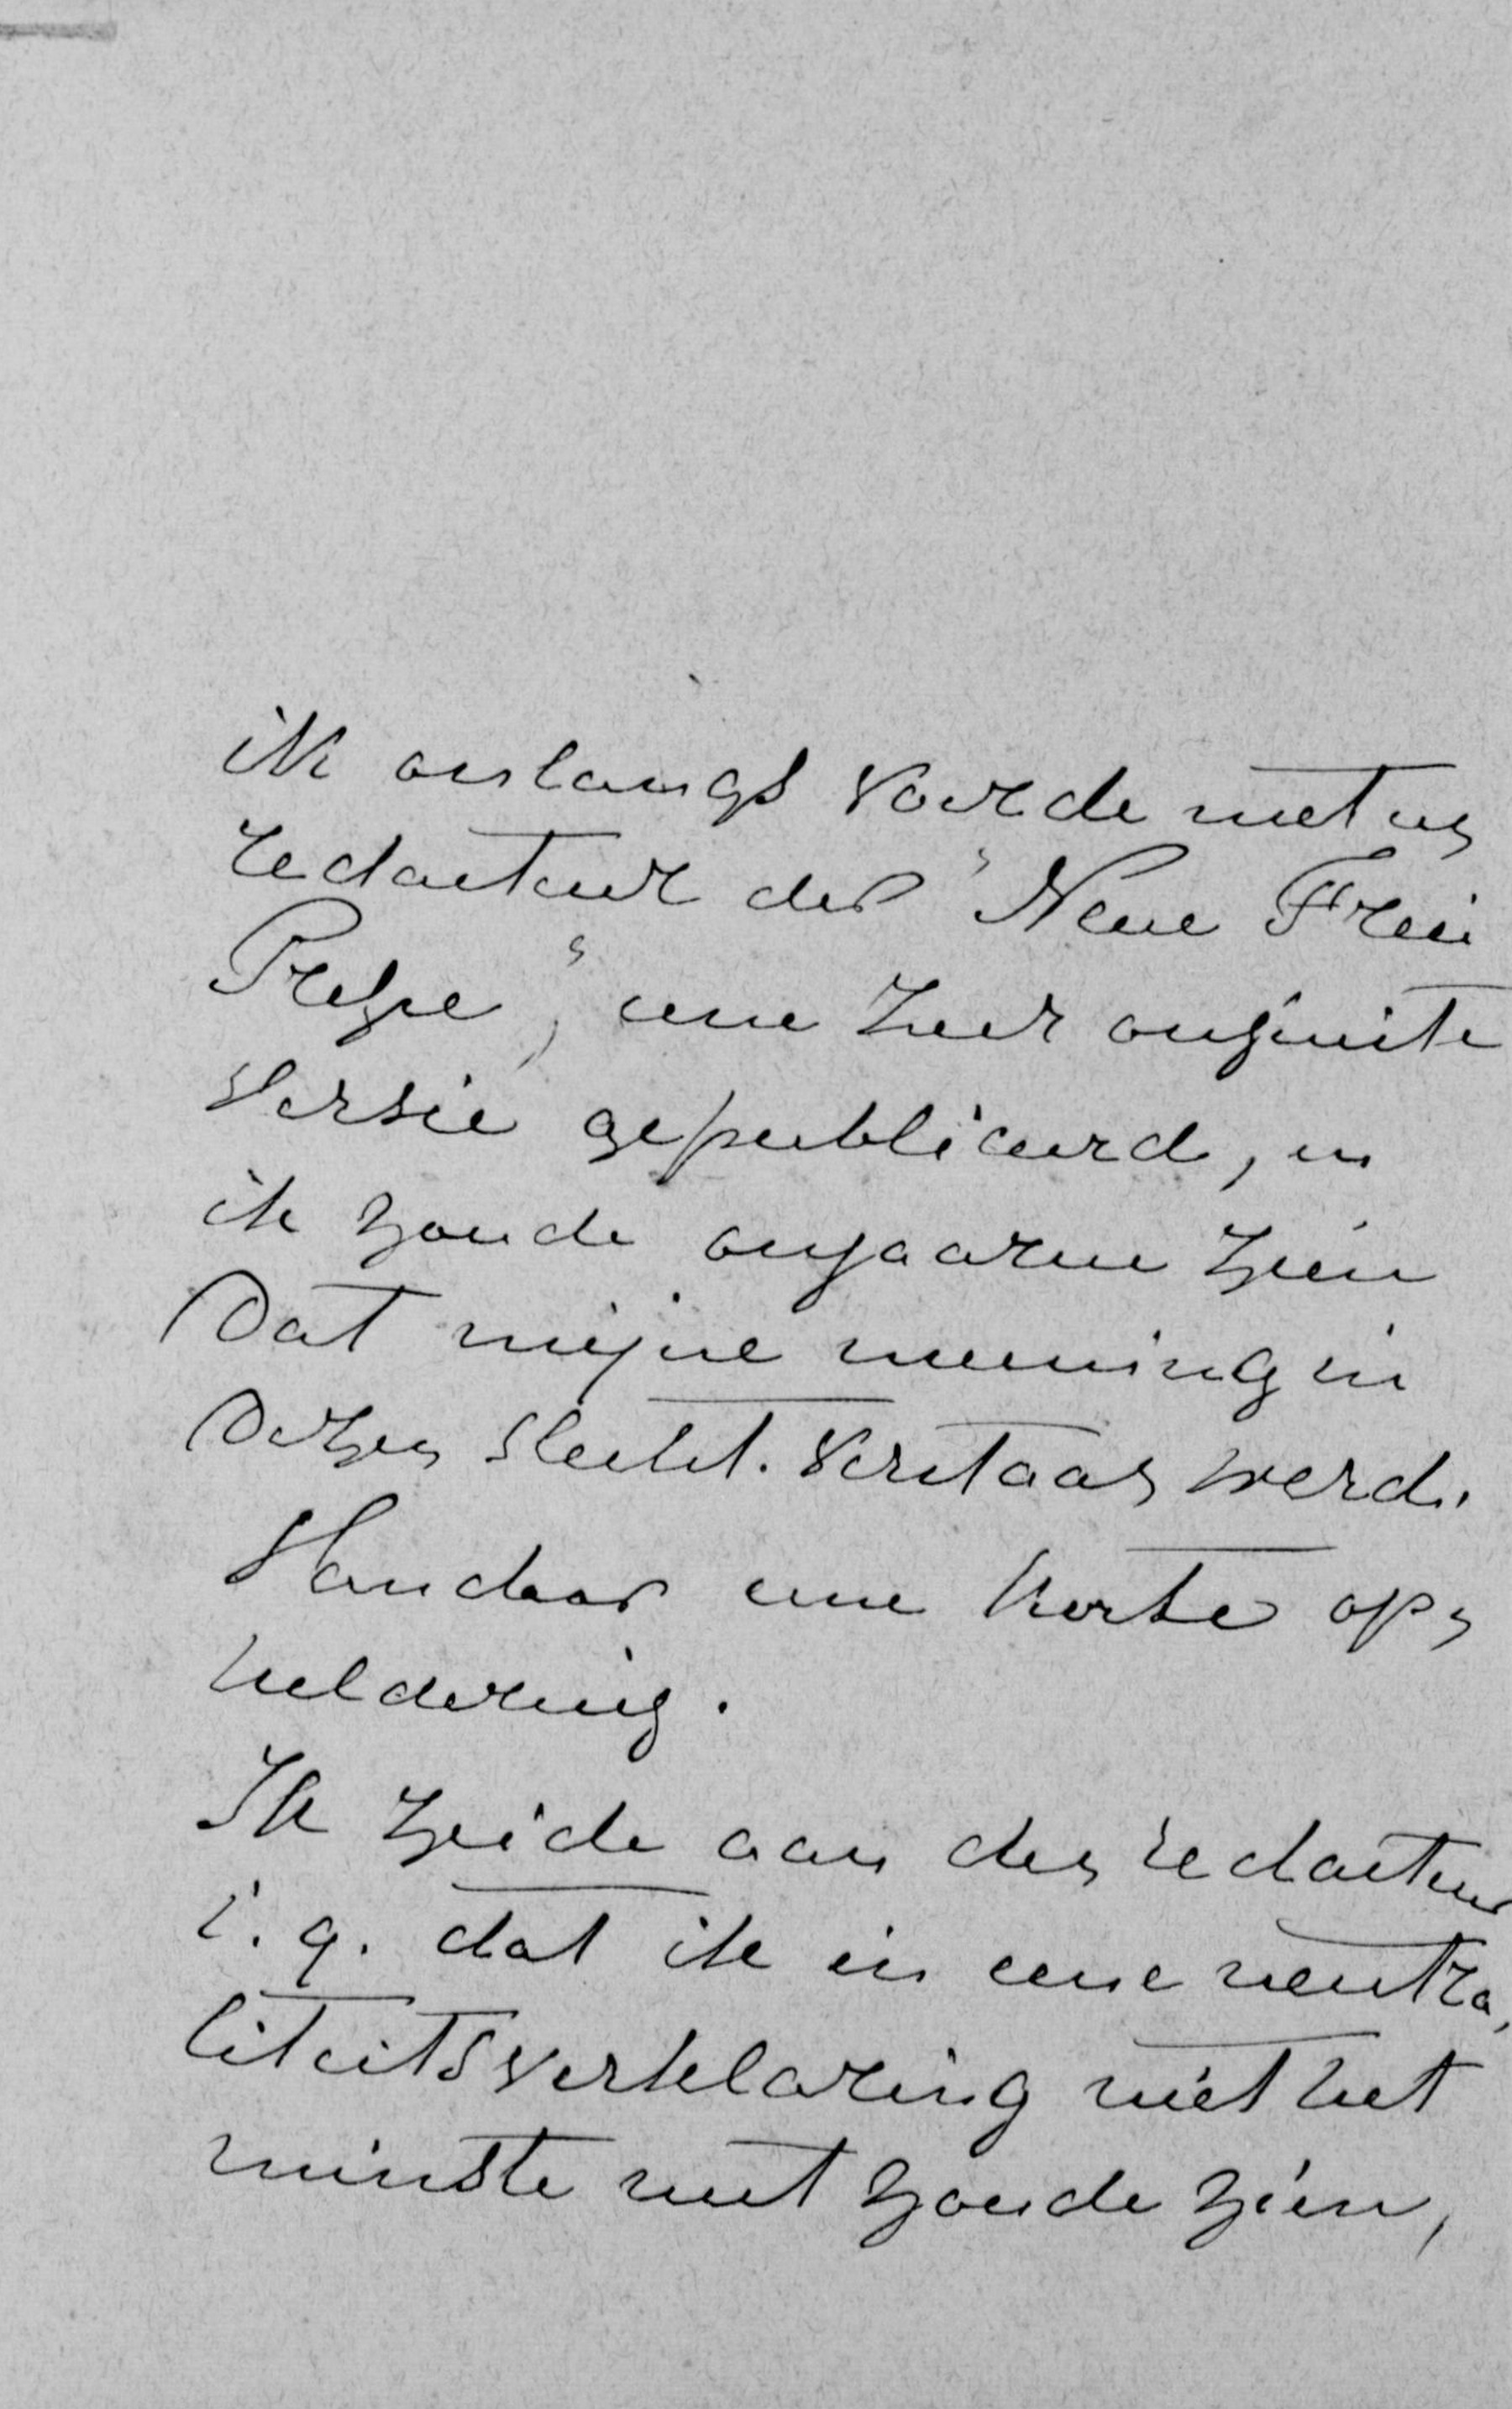 ik onlangs voerde met een
redacteur der "Neue Freie
Presse", eene zeer onjuiste
versie gepubliceerd, en
ik zoude ongaarne zien
dat mijne meening in
dezen slecht verstaan werd.
Vandaar eene korte op-
heldering.
Ik zeide aan den redacteur
i. q. dat ik in eene neutra-
liteitsverklaring niet het
minste nut zoude zien,